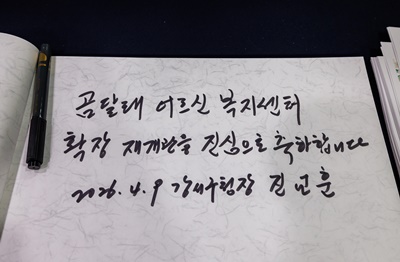 곰달래 어르신 복지센터
확장 재개관을 진심으로 축하합니다
2026. 4. 9 강서구청장 진교훈